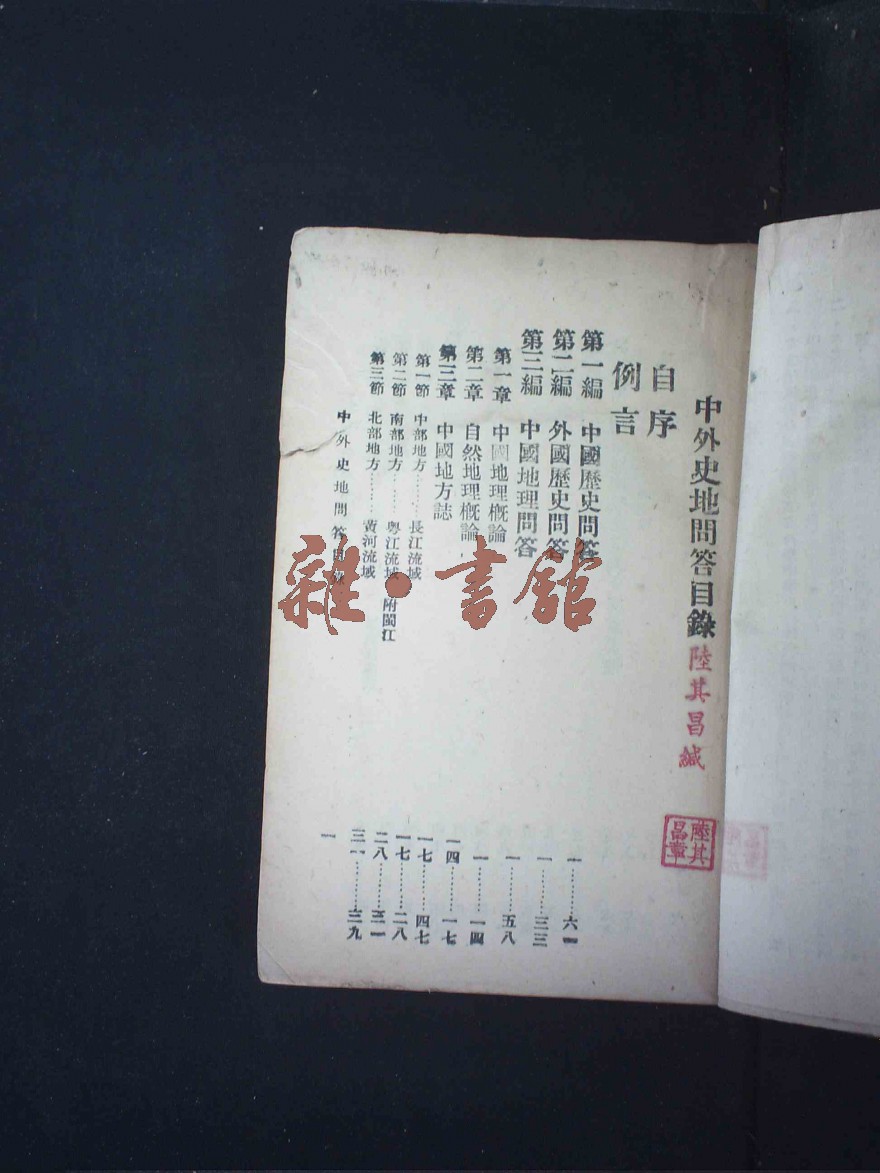 中外史地問答目錄
陸其昌緘
陸其昌章
自序
例言
第一編 中國歷史問答 一………六一
第二編 外國歷史問答 一………三三
第三編 中國地理問答 一………五八
第一章 中國地理概論 一………一四
第二章 自然地理概論 一四………一七
第三章 中國地方誌 一七………四七
第一節 中部地方………長江流域 一七………二八
第二節 南部地方………粵江流域 附閩江 二八………三一
第三節 北部地方………黃河流域 三一………三九
中外史地問答目錄 一
雜·書館